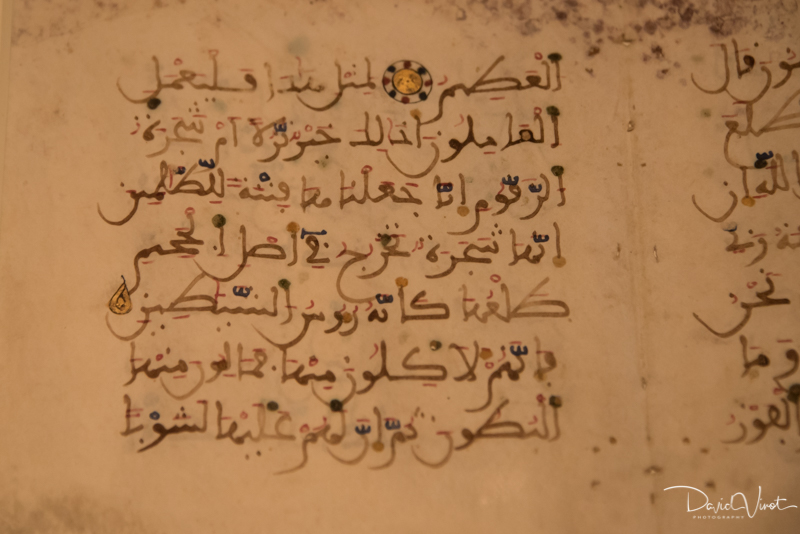 قال
ان
نحن
وما
الفوز
العظيم لمثل هذا فليعمل
العاملون اذالك خير نزلا ام شجرة
الزقوم انا جعلناها فتنة للظلمين
انها شجرة تخرج في اصل الجحيم
طلعها كانه رءوس الشيطين
فانهم لاكلون منها فمالون منها
البطون ثم ان لهم عليها لشوبا
David Virot
PHOTOGRAPHY